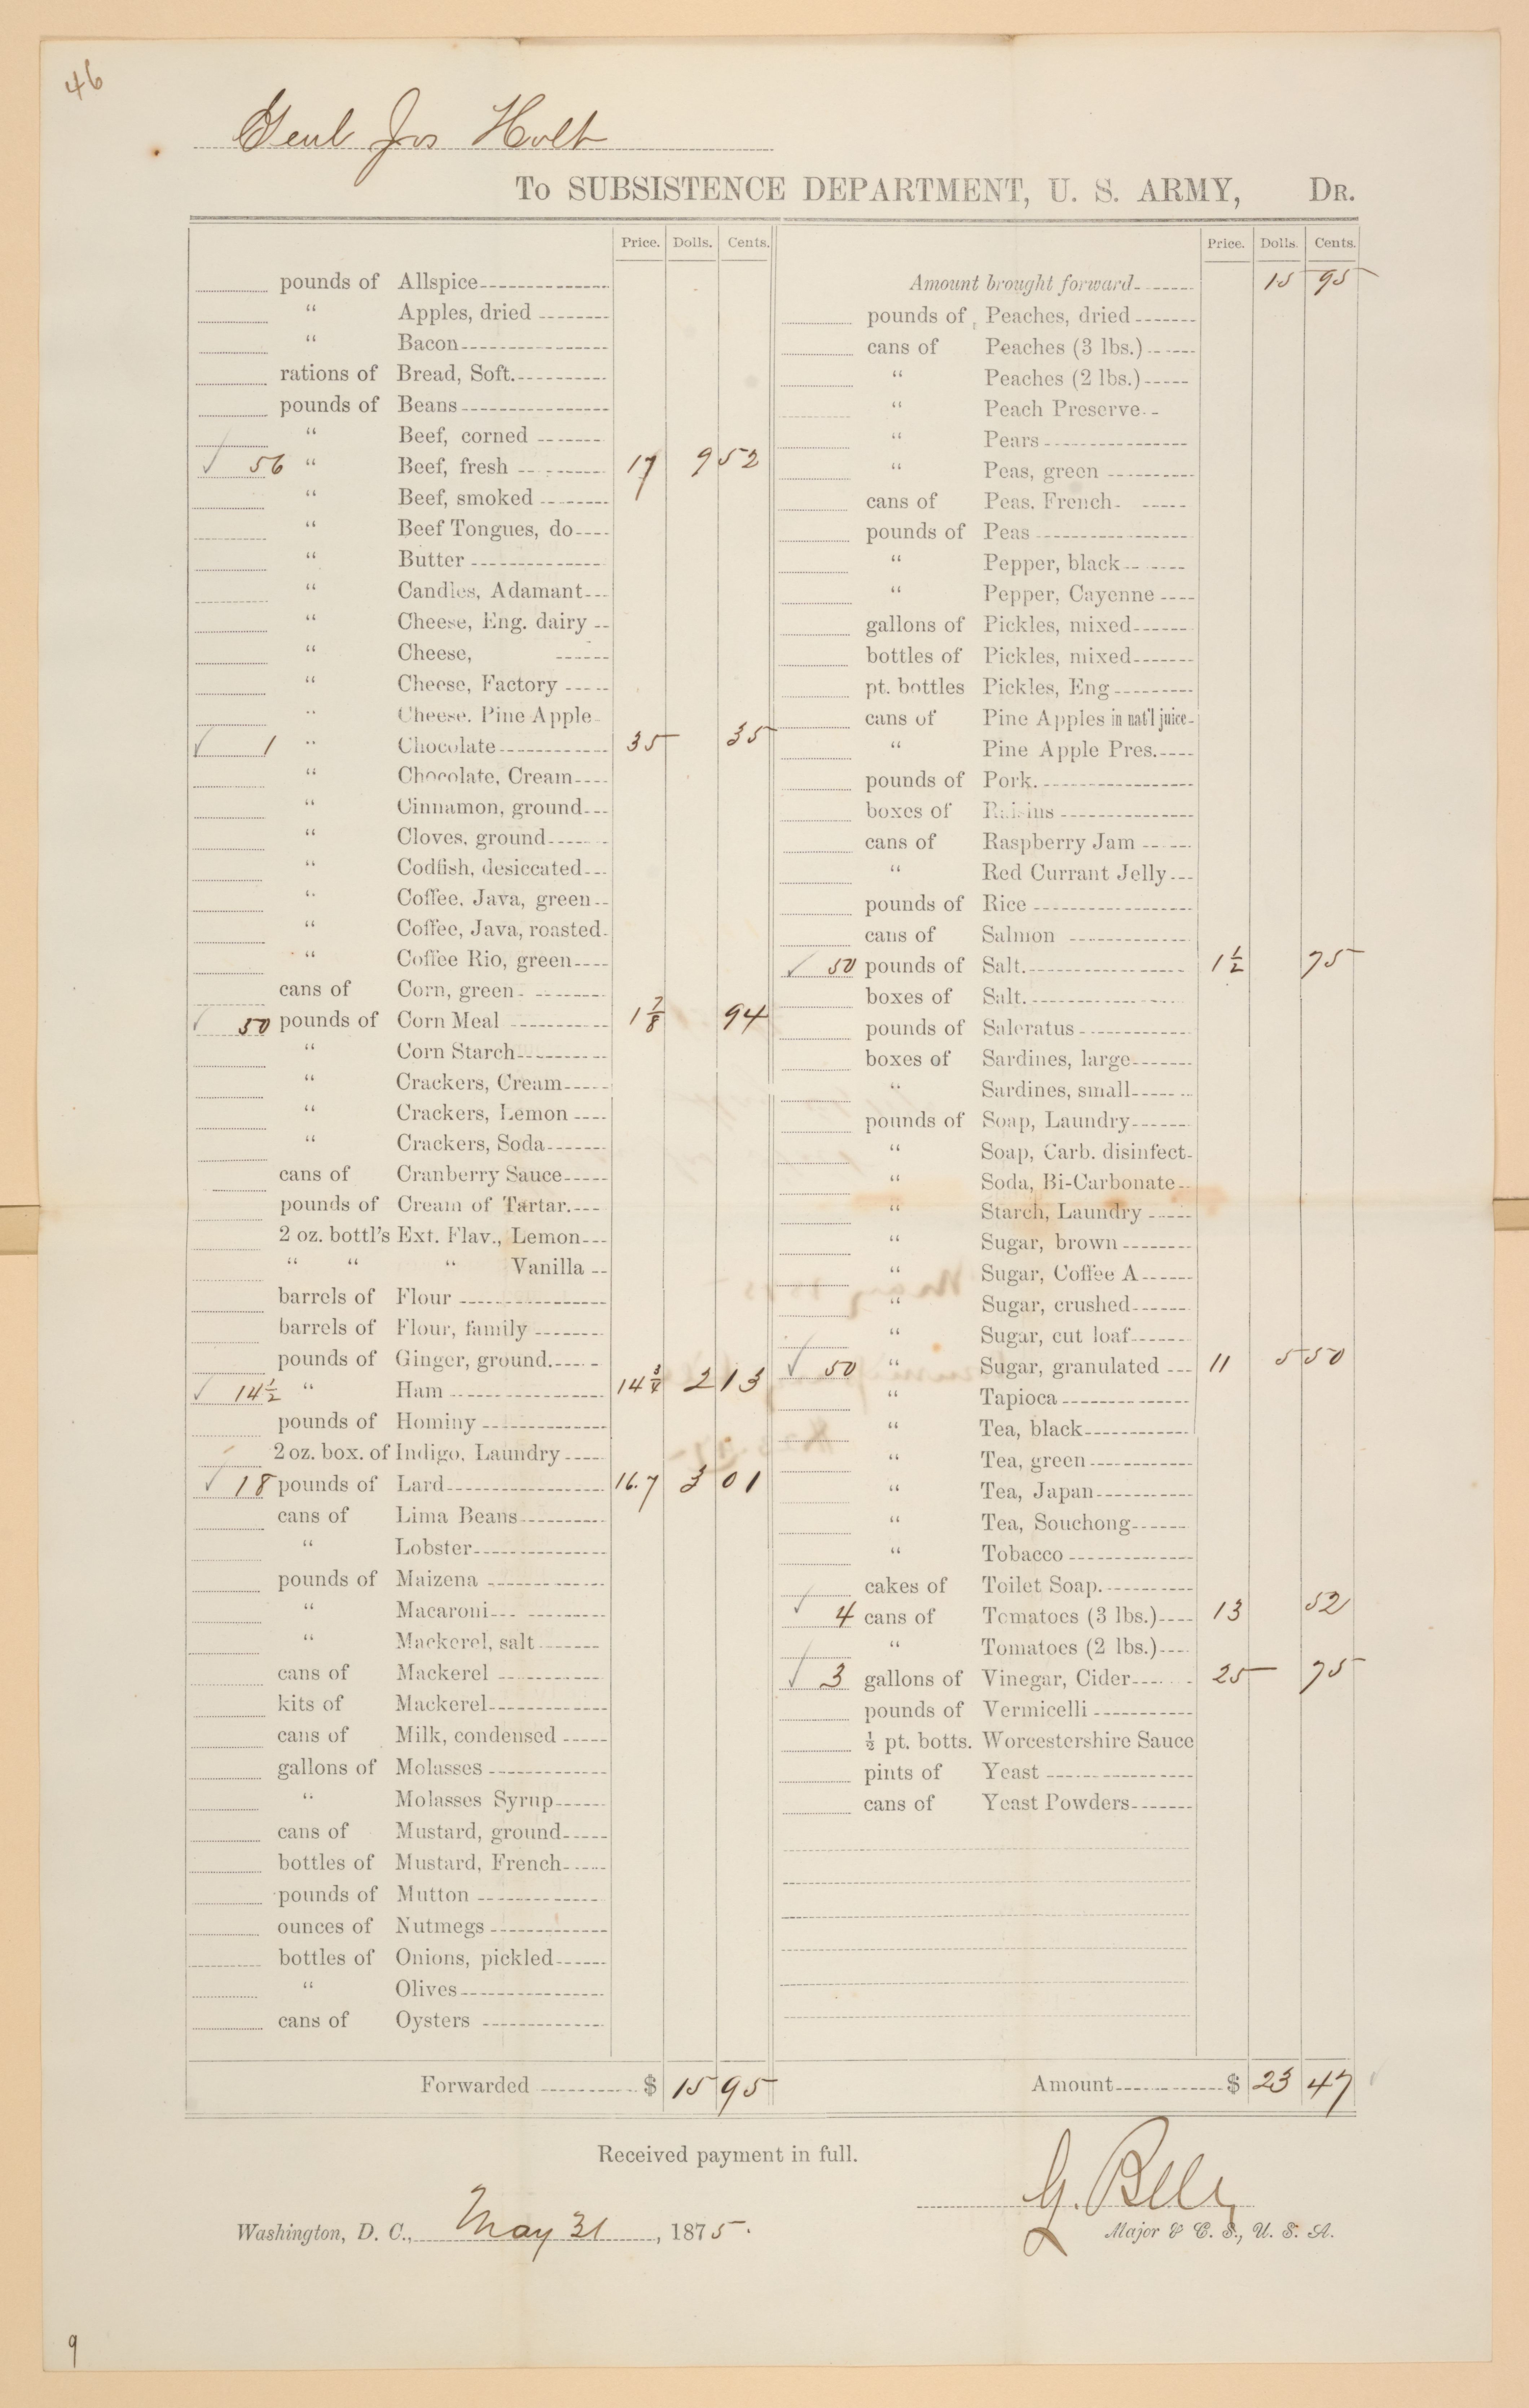 46
Genl Jos Holt
To SUBSISTENCE DEPARTMENT, U. S. ARMY, DR.
Price. Dolls. Cents.
pounds of Allspice
" Apples, dried
" Bacon
rations of Bread, Soft.
pounds of Beans
" Beef, corned
✓ 56 " Beef, fresh 17 9 52
" Beef, smoked
" Beef Tongues, do
" Butter
" Candles, Adamant
" Cheese, Eng. dairy
" Cheese,
" Cheese, Factory
" Cheese. Pine Apple
✓ 1 " Chocolate 35 35
" Chocolate, Cream
" Cinnamon, ground
" Cloves, ground
" Codfish, desiccated
" Coffee, Java, green
" Coffee, Java, roasted
" Coffee Rio, green
cans of Corn, green
✓ 50 pounds of Corn Meal 1 7/8 94
" Corn Starch
" Crackers, Cream
" Crackers, Lemon
" Crackers, Soda
cans of Cranberry Sauce
pounds of Cream of Tartar.
2 oz. bottl's Ext. Flav., Lemon
" " " Vanilla
barrels of Flour
barrels of Flour, family
pounds of Ginger, ground.
✓ 14 1/2 " Ham 14 3/4 2 13
pounds of Hominy
2 oz. box. of Indigo, Laundry
✓ 18 pounds of Lard 16.7 3 01
cans of Lima Beans
" Lobster
pounds of Maizena
" Macaroni
" Mackerel, salt
cans of Mackerel
kits of Mackerel
cans of Milk, condensed
gallons of Molasses
" Molasses Syrup
cans of Mustard, ground
bottles of Mustard, French
pounds of Mutton
ounces of Nutmegs
bottles of Onions, pickled
" Olives
cans of Oysters
Forwarded $ 15 95
Price. Dolls. Cents.
Amount brought forward 15 95
pounds of Peaches, dried
cans of Peaches (3 lbs.)
" Peaches (2 lbs.)
" Peach Preserve
" Pears
" Peas, green
cans of Peas. French
pounds of Peas
" Pepper, black
" Pepper, Cayenne
gallons of Pickles, mixed
bottles of Pickles, mixed
pt. bottles Pickles, Eng
cans of Pine Apples in nat'l juice
" Pine Apple Pres.
pounds of Pork.
boxes of Raisins
cans of Raspberry Jam
" Red Currant Jelly
pounds of Rice
cans of Salmon
✓ 50 pounds of Salt. 1 1/2 75
boxes of Salt.
pounds of Saleratus
boxes of Sardines, large
" Sardines, small
pounds of Soap, Laundry
" Soap, Carb. disinfect
" Soda, Bi-Carbonate
" Starch, Laundry
" Sugar, brown
" Sugar, Coffee A
" Sugar, crushed
" Sugar, cut loaf
✓ 50 " Sugar, granulated 11 5 50
" Tapioca
" Tea, black
" Tea, green
" Tea, Japan
" Tea, Souchong
" Tobacco
cakes of Toilet Soap.
✓ 4 cans of Tomatoes (3 lbs.) 13 52
" Tomatoes (2 lbs.)
✓ 3 gallons of Vinegar, Cider 25 75
pounds of Vermicelli
½ pt. botts. Worcestershire Sauce
pints of Yeast
cans of Yeast Powders
Amount $ 23 47
Received payment in full.
G. Bell
Washington, D. C., May 31, 1875.
Major & C. S., U. S. A.
9